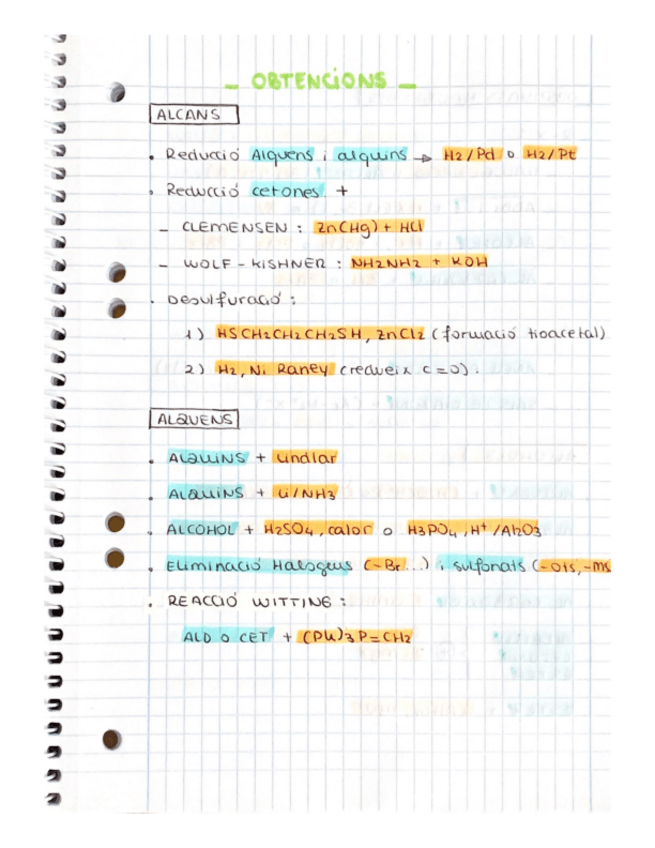 - OBTENCIONS -
ALCANS
• Reducció Alquens i alquins → H2/Pd o H2/Pt
• Reducció cetones +
- CLEMENSEN : Zn(Hg) + HCl
- WOLF-KISHNER : NH2NH2 + KOH
• Desulfuració :
1) HSCH2CH2CH2SH, ZnCl2 (formació tioacetal)
2) H2, Ni Raney (redueix C=O).
ALQUENS
• ALQUINS + Lindlar
• ALQUINS + Li/NH3
• ALCOHOL + H2SO4, calor o H3PO4, H+/Al2O3
• Eliminació Halogens (-Br...) i sulfonats (-OTs, -Ms
• REACCIÓ WITTING :
ALD O CET + (Ph)3P=CH2